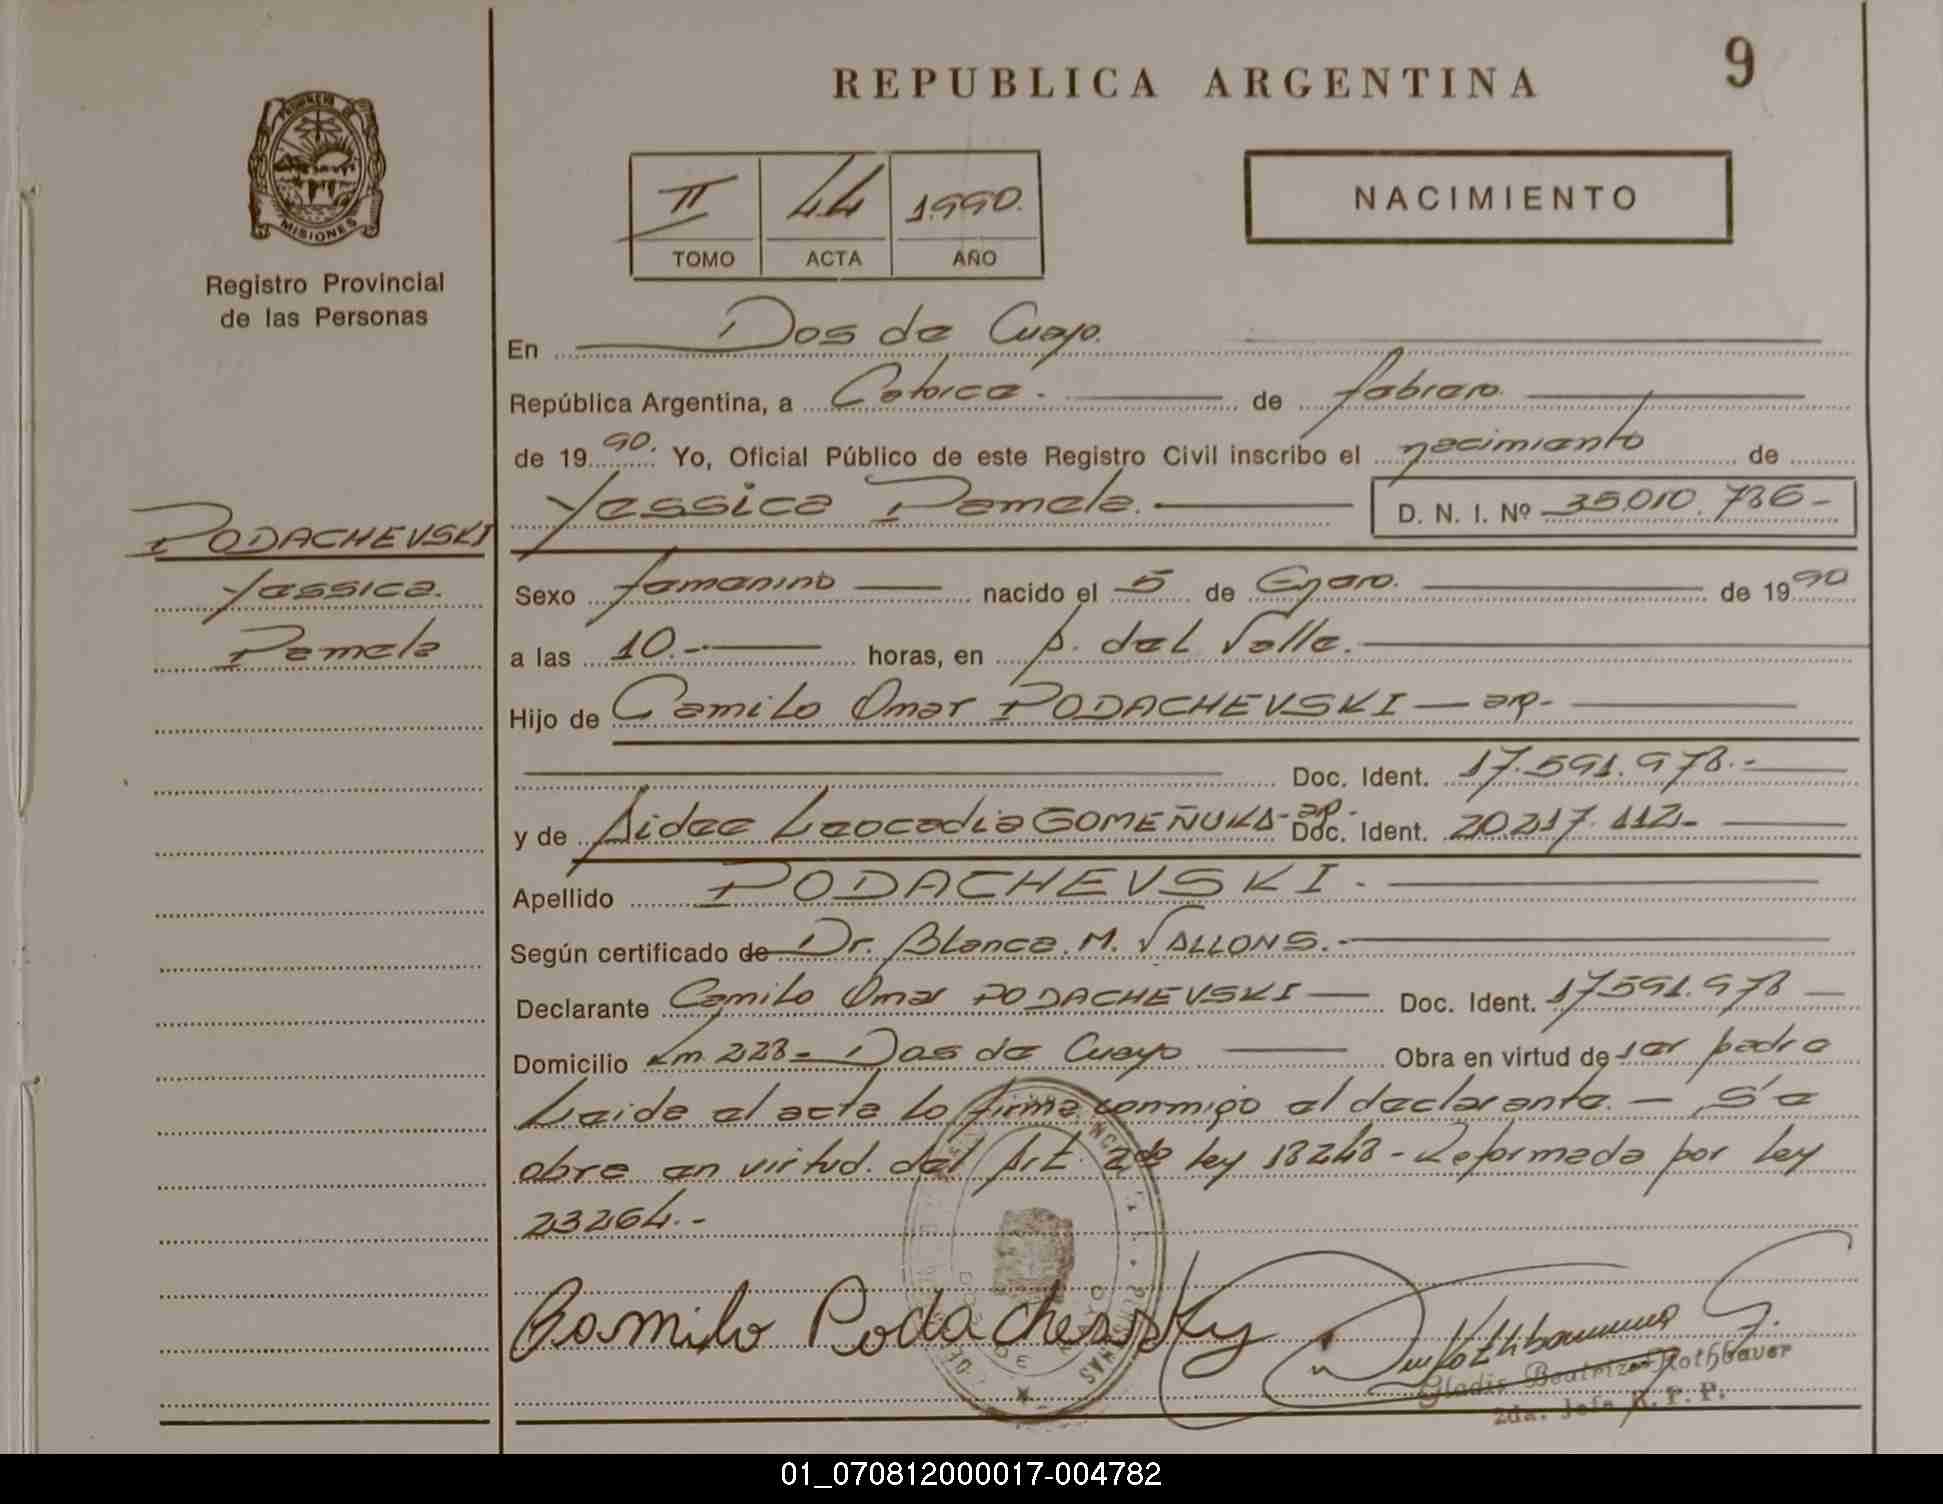 REPUBLICA ARGENTINA
9
PROVINCIA DE
MISIONES
Registro Provincial
de las Personas
II 44 1990.
TOMO ACTA AÑO
NACIMIENTO
En Dos de Cuayo.
República Argentina, a Catorce. de febrero.
de 1990. Yo, Oficial Público de este Registro Civil inscribo el nacimiento de
Yessica Pamela. D. N. I. Nº 35.010.736-
PODACHEVSKI
Yessica.
Pamela
Sexo femenino nacido el 5 de Enero. de 1990
a las 10.- horas, en A. del Valle.
Hijo de Camilo Omar PODACHEVSKI — ar-
Doc. Ident. 17.591.978.-
y de Aidee Leocadia GOMEÑUKA-ar- Doc. Ident. 20.217.112-
Apellido PODACHEVSKI.
Según certificado de Dr. Blanca. M. VALLONS.-
Declarante Camilo Omar PODACHEVSKI — Doc. Ident. 17.591.978 —
Domicilio Km 228- Dos de Cuayo Obra en virtud de ser padre
Leida el acta lo firma conmigo el declarante. — S/a
obre en virtud. del Art. 2do ley 18248 - Reformada por ley
23264.-
Camilo Podachevsky
Gladis Beatriz Rothbauer
2da. Jefe R.P.P.
01_070812000017-004782